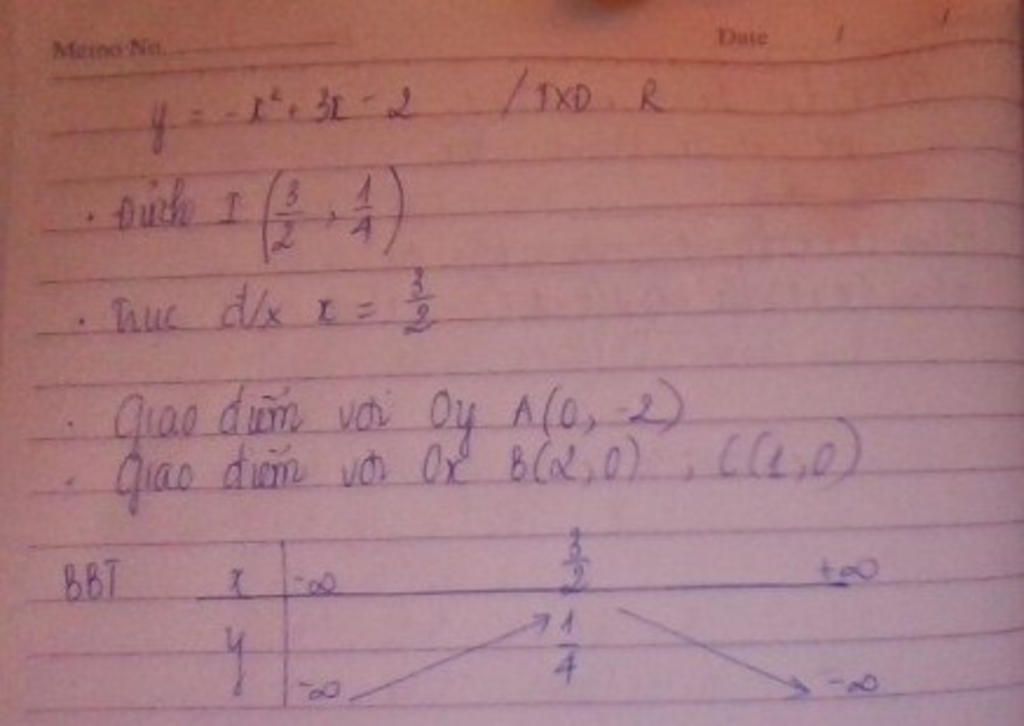 Memo No. Date / /
y = -x² + 3x - 2 / TXD R
. Đỉnh I (3/2, 1/4)
. Trục đ/x x = 3/2
. Giao điểm với Oy A(0, -2)
. Giao điểm với Ox B(2,0) , C(1,0)
BBT x -∞ 3/2 +∞
y 1/4
-∞ -∞